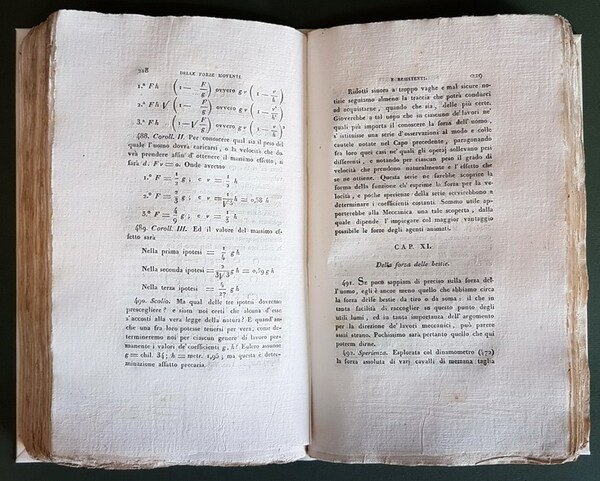 218 DELLE FORZE MOVENTI
1.ª F h ( 1 — F/g ) ovvero g v ( 1 — v/h )
2.ª F h √ ( 1 — F/g ) ovvero g v ( 1 — v²/h² )
3.ª F h ( 1 — √ F/g ) ovvero g v ( 1 — v/h )²
488. Coroll. II. Per conoscere qual sia il peso del
quale l'uomo dovrà caricarsi, o la velocità che do-
vrà prendere affin d'ottenere il massimo effetto, si
farà d. F v = 0. Onde avremo
1.ª F = 1/2 g ; e v = 1/2 h
2.ª F = 2/3 g ; e v = 1/√3 h = 0,58 h
3.ª F = 4/9 g ; e v = 1/3 h
489. Coroll. III. Ed il valore del massimo ef-
fetto sarà
Nella prima ipotesi = 1/4 g h
Nella seconda ipotesi = 2/3√3 g h = 0,39 g h
Nella terza ipotesi = 4/27 g h
490. Scolio. Ma qual delle tre ipotesi dovremo
prescegliere? e siam noi certi che alcuna d'esse
s'accosti alla vera legge della natura? E quand'an-
che una fra loro potesse tenersi per vera, come de-
termineremo noi per ciascun genere di lavoro per-
manente i valori de' coefficienti g, h? Eulero assume
g = chil. 34; h = metr. 1,95; ma questa è deter-
minazione affatto precaria.
E RESISTENTI. 219
Ridotti sinora a troppo vaghe e mal sicure no-
tizie seguiamo almeno la traccia che potrà condurci
ad acquistarne, quando che sia, delle più certe.
Gioverebbe a tal uopo che in ciascuno de' lavori ne'
quali più importa il conoscere la forza dell'uomo,
s'istituisse una serie d'osservazioni al modo e colle
cautele notate nel Capo precedente, paragonando
fra loro quei casi ne' quali gli operaj sollevano pesi
differenti, e notando per ciascun peso il grado di
velocità che prendono naturalmente e l'effetto che
se ne ottiene. Questa serie ne farebbe scoprire la
forma della funzione ch'esprime la forza per la ve-
locità, e poche sperienze della serie servirebbono a
determinare i coefficienti costanti. Sommo utile ap-
porterebbe alla Meccanica una tale scoperta, dalla
quale dipende l'impiegare col maggior vantaggio
possibile le forze degli agenti animati.
CAP. XI.
Della forza delle bestie.
491. Se poco sappiam di preciso sulla forza del-
l'uomo, egli è ancor meno quello che abbiamo circa
la forza delle bestie da tiro o da soma: il che in
tanta facilità di raccoglier su questo punto degli
utili lumi, ed in tanta importanza dell'argomento
per la direzione de' lavori meccanici, può parere
assai strano. Pochissimo sarà pertanto quello che qui
poterm dirne.
492. Sperienza. Esplorata col dinamometro (472)
la forza assoluta di varj cavalli di mezzana taglia